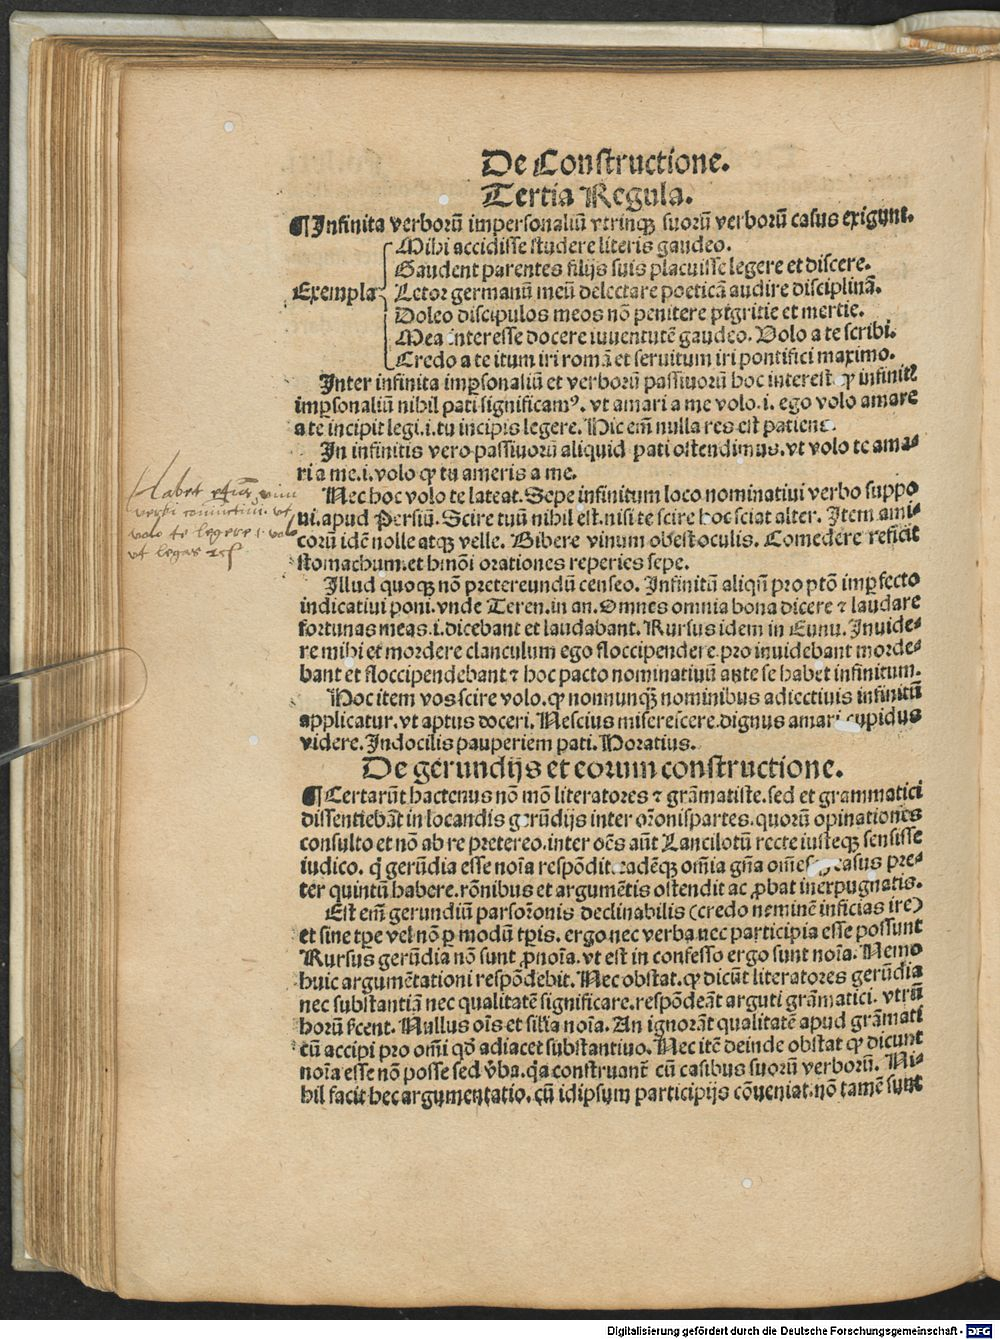 De Constructione.
Tertia Regula.
¶Infinita verborū impersonaliū vtrinq̢ suorū verborū casus exigunt.
Mihi accidisse studere literis gaudeo.
Gaudent parentes filijs suis placuisse legere et discere.
Exempla Letor germanū meū delectare poeticā audire disciplinā.
Doleo discipulos meos nō penitere pigritie et inertie.
Mea interesse docere iuuentutē gaudeo. Volo a te scribi.
Credo a te itum iri romā et seruitum iri pontifici maximo.
Inter infinita imp̱sonaliū et verborū passiuorū hoc interest ꝙ infinita
imp̱sonaliū nihil pati significamꝰ. vt amari a me volo .i. ego volo amare
a te incipit legi .i. tu incipis legere. Hic em̄ nulla res est patiens.
In infinitis vero passiuorū aliquid pati ostendimus. vt volo te ama⸗
ri a me .i. volo ꝙ tu ameris a me.
Habet etiā vim
verbi coniunctiui. vt
volo te legere .i. volo
vt legas
Nec hoc volo te lateat. Sepe infinitum loco nominatiui verbo suppo
ni. apud Persiū. Scire tuū nihil est. nisi te scire hoc sciat alter. Item ami⸗
corū idē nolle atq̢ velle. Bibere vinum obest oculis. Comedere reficit
stomachum. et hmōi orationes reperies sepe.
Illud quoq̢ nō pretereundū censeo. Infinitū aliqn̄ pro p̄tō imp̱fecto
indicatiui poni. vnde Teren. in an. Omnes omnia bona dicere ⁊ laudare
fortunas meas .i. dicebant et laudabant. Rursus idem in Eunu. Inuide⸗
re mihi et mordere clanculum ego floccipendere. pro inuidebant morde⸗
bant et floccipendebant ⁊ hoc pacto nominatiuū ante se habet infinitum.
Hoc item vos scire volo. ꝙ nonnunq̄ nominibus adiectiuis infinitū
applicatur. vt aptus doceri. Nescius miserescere. dignus amari cupidus
videre. Indocilis pauperiem pati. Horatius.
De gerundijs et eorum constructione.
¶Certarūt hactenus nō mō literatores ⁊ grāmatiste. sed et grammatici
dissentiebāt in locandis gerūdijs inter orōnis partes. quorū opinationes
consulto et nō ab re pretereo. inter oēs aūt Lancilotū recte iusteq̢ sensisse
iudico. q̇ gerūdia esse noīa respōdit eadēq̢ om̄ia gn̄a om̄esq̢ casus pre⸗
ter quintū habere. rōnibus et argumētis ostendit ac ꝓbat inexpugnatis.
Est em̄ gerundiū pars orōnis declinabilis (credo neminē inficias ire)
et sine tp̄e vel nō ꝑ modū tp̄is. ergo nec verba nec participia esse possunt
Rursus gerūdia nō sunt ꝓnoīa. vt est in confesso ergo sunt noīa. Nemo
huic argumētationi respōdebit. Nec obstat. ꝙ dicūt literatores gerūdia
nec substantiā nec qualitatē significare. respōdeāt arguti grāmatici. vtrū
horū fcent. Nullus oīs et silia noīa. An ignorāt qualitatē apud grāmati
cū accipi pro om̄i qd̄ adiacet substantiuo. Nec itē deinde obstat ꝙ dicunt
noīa esse nō posse sed v̄ba. q̇a construant̄ cū casibus suorū verborū. Ni⸗
hil facit hec argumentatio. cū id ipsum participijs cōueniat. nō tamē sunt
Digitalisierung gefördert durch die Deutsche Forschungsgemeinschaft - DFG